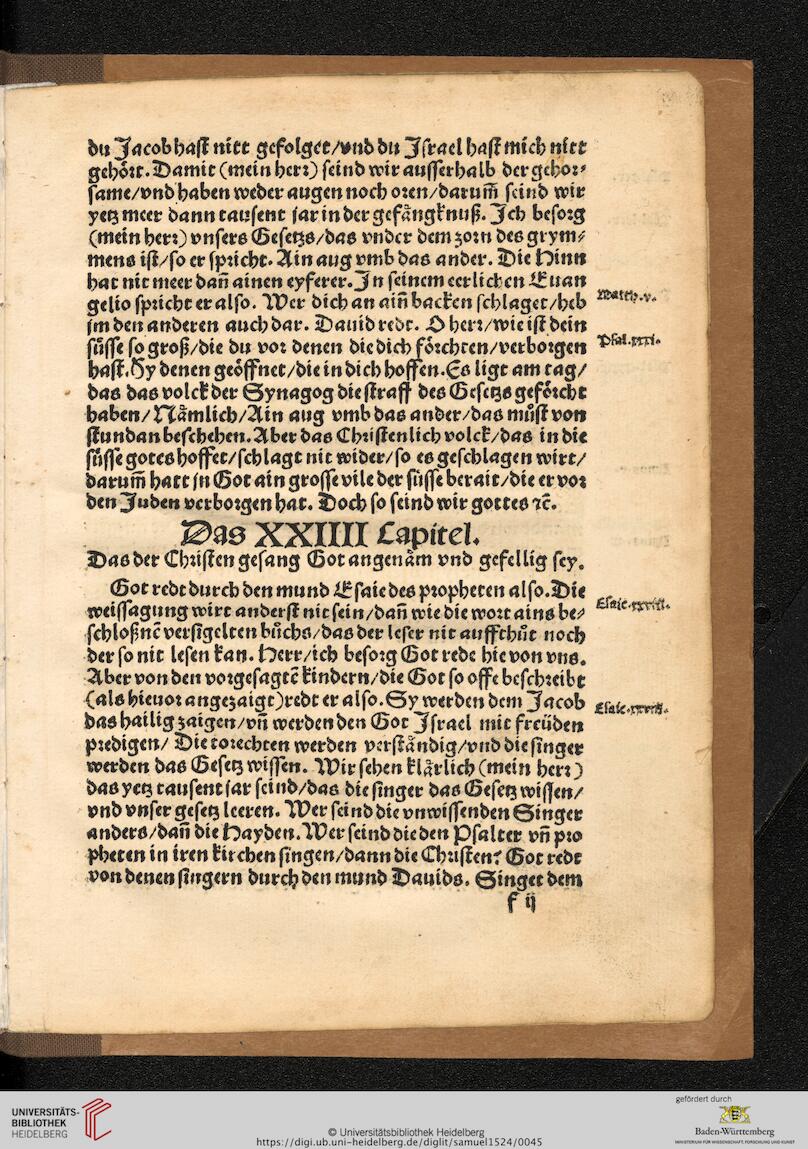 du Jacob hast nitt gefolget/vnd du Jsrael hast mich nitt
gehört. Damit (mein herr) seind wir ausserhalb der gehor⸗
same/vnd haben weder augen noch oren/darum̃ seind wir
yetz meer dann tausent jar in der gefängknuß. Jch besorg
(mein herr) vnsers Gesetzs/das vnder dem zorn des grym⸗
mens ist/so er spricht. Ain aug vmb das ander. Die Hinn
hat nit meer dañ ainen eyferer. Jn seinem eerlichen Euan
gelio spricht er also. Wer dich an aiñ backen schlaget/heb
Matth.v.
jm den anderen auch dar. Dauid redt. O herr/wie ist dein
süsse so groß/die du vor denen die dich förchten/verborgen
Psal.xxxi.
hast. Hy denen geöffnet/die in dich hoffen. Es ligt am tag/
das das volck der Synagog die straff des Gesetzs geförcht
haben/Nämlich/Ain aug vmb das ander/das můst von
stundan beschehen. Aber das Christenlich volck/das in die
süsse gotes hoffet/schlagt nit wider/so es geschlagen wirt/
darum̃ hatt jn Got ain grosse vile der süsse berait/die er vor
den Juden verborgen hat. Doch so seind wir gottes ⁊c̃.
Das XXIIII Capitel.
Das der Christen gesang Got angenäm vnd gefellig sey.
Got redt durch den mund Esaie des propheten also. Die
weissagung wirt anderst nit sein/dañ wie die wort ains be⸗
Esaie.xxviiij.
schloßnẽ versigelten bůchs/das der leser nit auffthůt noch
der so nit lesen kan. Herr/ich besorg Got rede hie von vns.
Aber von den vorgesagtẽ kindern/die Got so offe beschreibt
(als hieuor angezaigt)redt er also. Sy werden dem Jacob
Esaie.xxviiij.
das hailig zaigen/vñ werden den Got Jsrael mit freüden
predigen/ Die torechten werden verständig/vnd die singer
werden das Gesetz wissen. Wir sehen klärlich (mein herr)
das yetz tausent jar seind/das die singer das Gesetz wissen/
vnd vnser gesetz leeren. Wer seind die vnwissenden Singer
anders/dañ die Hayden. Wer seind die den Psalter vñ pro
pheten in iren kirchen singen/dann die Christen? Got redt
von denen singern durch den mund Dauids. Singet dem
f ij
UNIVERSITÄTS-
BIBLIOTHEK
HEIDELBERG
© Universitätsbibliothek Heidelberg
https://digi.ub.uni-heidelberg.de/diglit/samuel1524/0045
gefördert durch
Baden-Württemberg
MINISTERIUM FÜR WISSENSCHAFT, FORSCHUNG UND KUNST